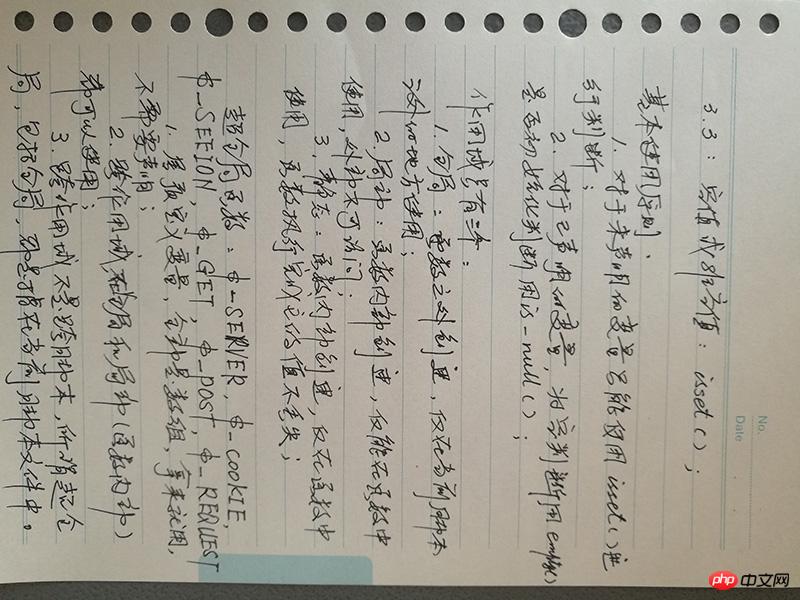 No.
Date
3.3：空值或非空值：isset()；
基本使用原则、
1. 对于未声明的变量只能使用 isset()进
行判断；
2. 对于已声明的变量，为空判断用empty()
是否初始化判断用is-null()；
作用域有三个：
1. 全局：函数之外创建，仅在当前脚本
函数外的地方使用；
2. 局部：函数内部创建，仅能在函数中
使用，外部不可访问；
3. 静态：函数内部创建，仅在函数中
使用，函数执行完成它的值不丢失；
超全局函数：$_SERVER，$_COOKIE，
$_SEEION，$_GET，$_POST，$_REQUEST
1. 预定义变量，全部是数组，拿来就用，
不需要声明；
2. 跨作用域，在全局和局部（函数内部）
都可以使用；
3. 跨作用域不是跨脚本，所谓超全
局，包括全局，都是指在当前脚本文件中。
php 中文网